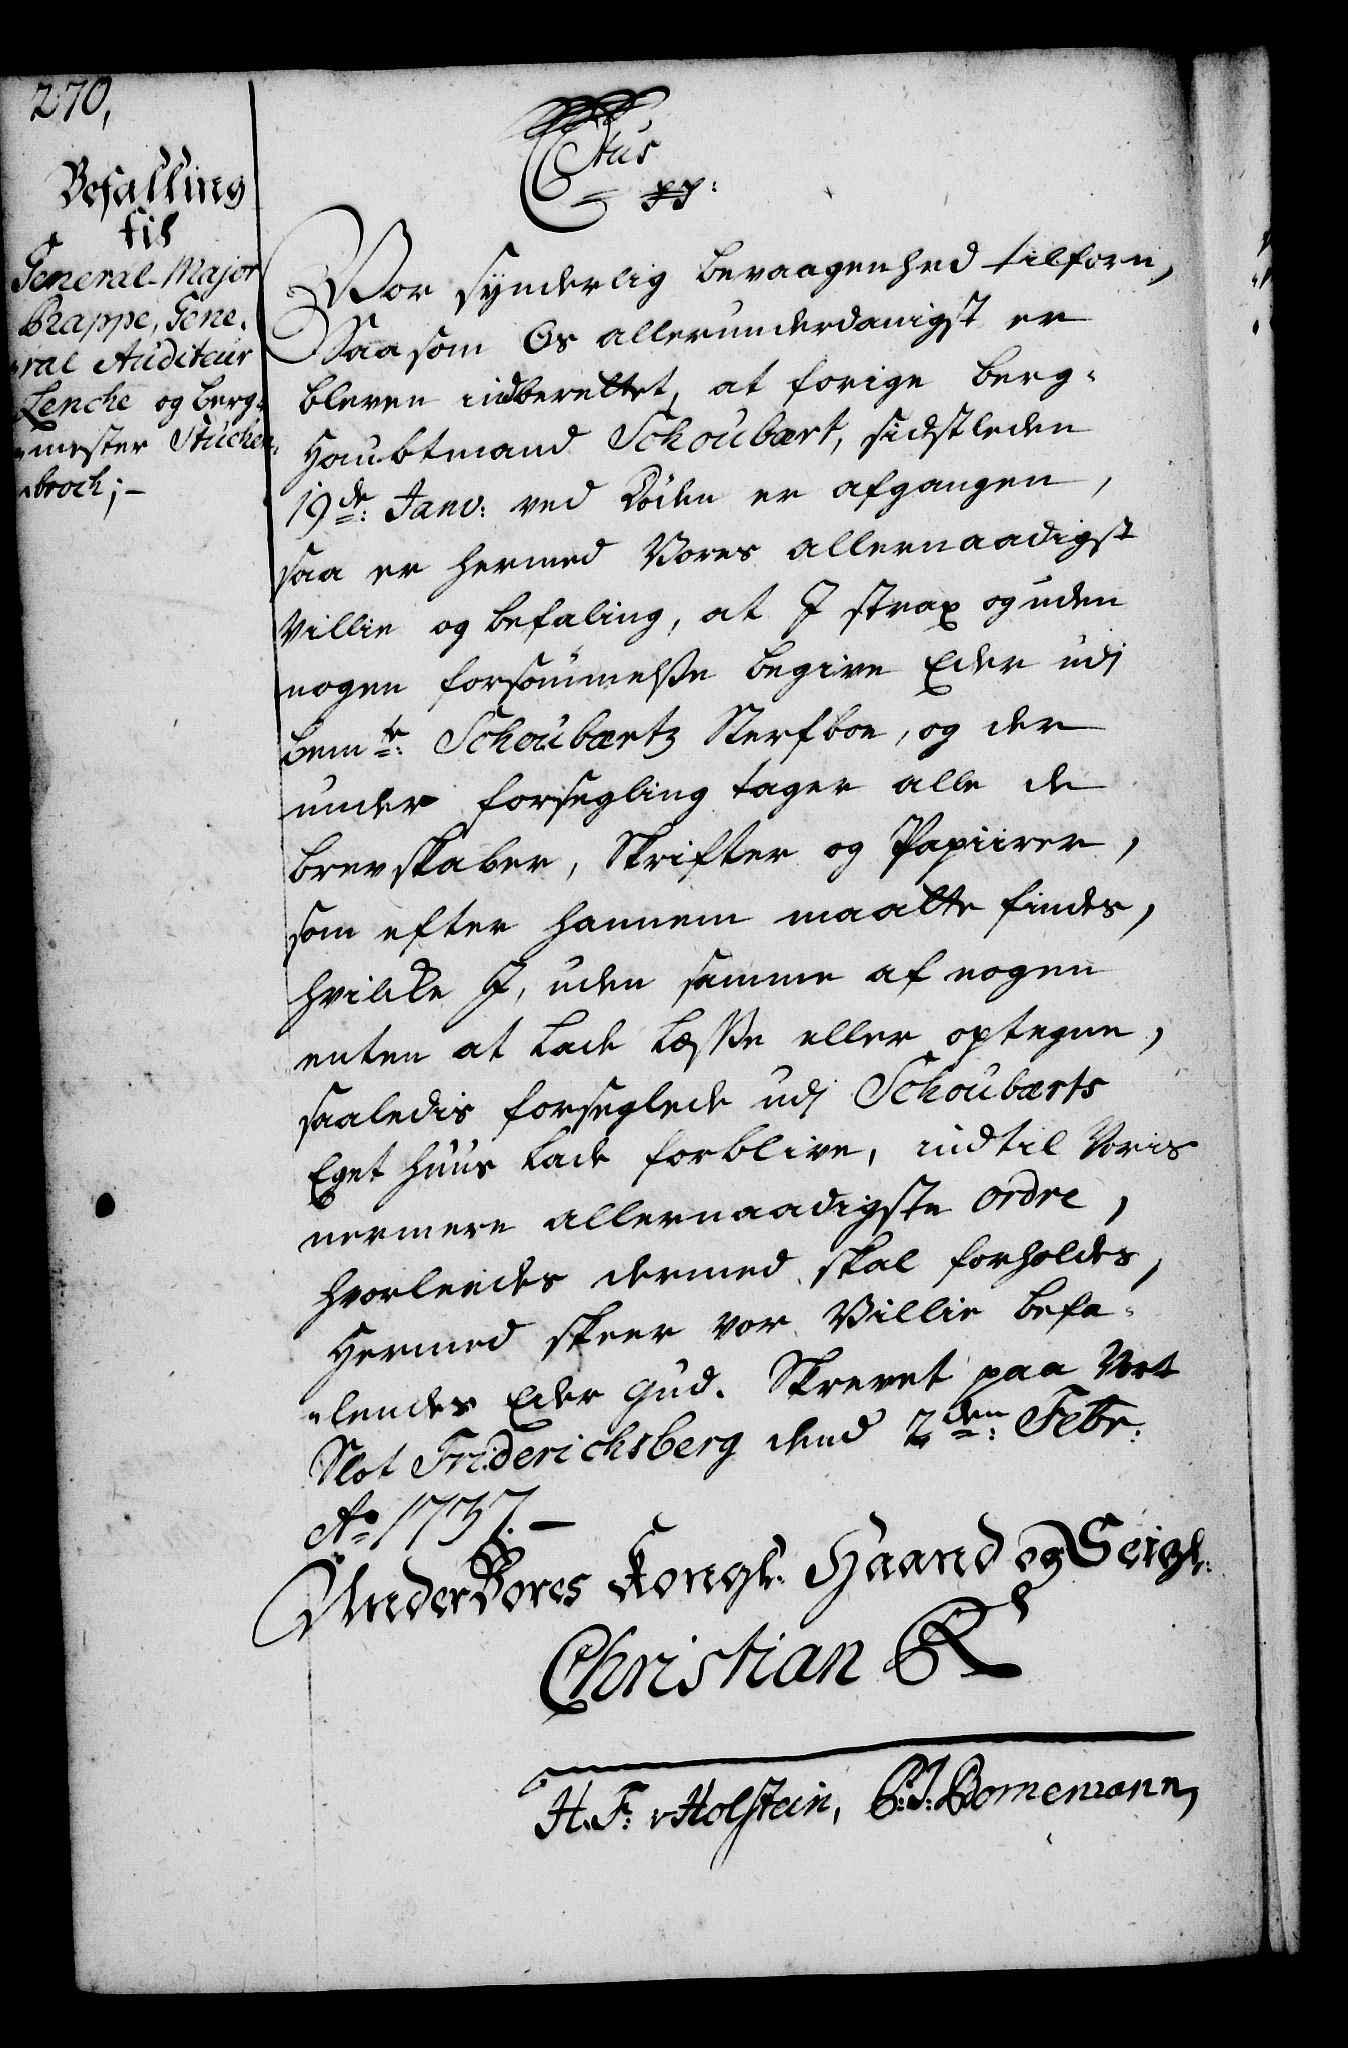 270,
Befalling
til
General-Major
Rappe, Gene-
ral Auditeur
Lencke og berg-
mester Stucken-
broch;-
Ctus
pp:
Vor synderlig bevaagenhed tilforn,
Saasom Os allerunderdanigst er
bleven indberettet, at forige berg-
Haubtmand Schoubært, sidstleden
19de: Janv: ved døden er afgangen,
saa er hermed Vores allernaadigst
Villie og befaling, at I strax og uden
nogen forsømmelsse begive Eder udj
bemte: Schoubærtz Sterfboe, og der
under forsegling tager alle de
brevskaber, Skrifter og Papiirer,
som efter hannem maatte findes,
hvilcke I, uden samme af nogen
enten at lade læsse eller optegne,
saaledis forseglede udj Schoubærts
Eget huus lade forblive, indtil Voris
nermere allernaadigste ordre,
hvorledes dermed skal forholdes,
Hermed skeer vor Villie befa-
lendes Eder Gud. Skrevet paa Vort
Slot Friderichsberg dend 2den: Febr:
Ao 1737.-
Under Vores Kongl: Haand og Seigl:
Christian R
H. F. v Holstein, C: J: Bornemann,